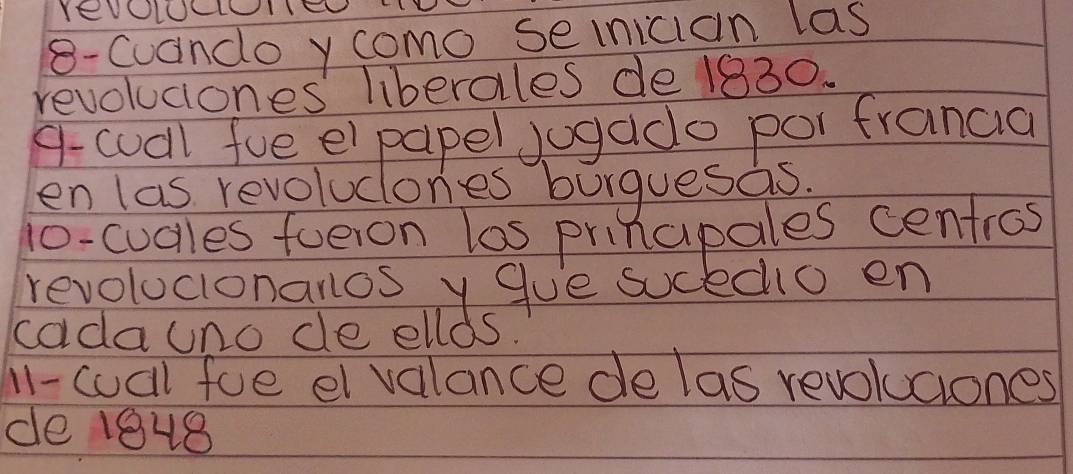 revoluciones
8-Cuando y como se inician las
revoluciones liberales de 1830.
9-cual fue el papel jugado por francia
en las revoluciones burguesas.
10-cuales fueron los principales centros
revolucionarios y que sucedio en
cada uno de ellos.
11-cual fue el valance de las revoluciones
de 1848